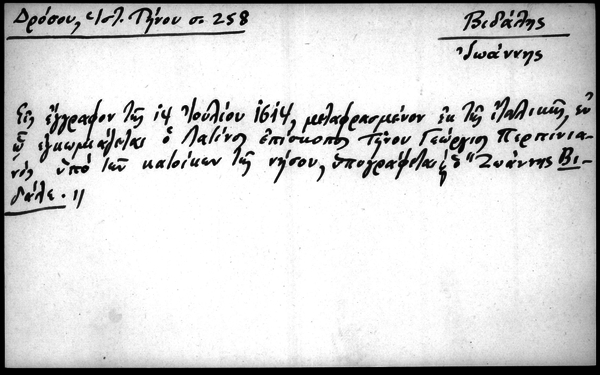 Δρόσου, Ἱστ. Τήνου σ. 258
Βιδάλης
Ἰωάννης
Εἰς ἔγγραφον τῆς 14 Ἰουλίου 1614, μεταφρασμένον ἐκ τῆς ἰταλικῆς, ἐν
ᾧ ἐγκωμιάζεται ὁ Λατῖνος ἐπίσκοπος Τήνου Γεώργιος Περπινια-
νὸς ὑπὸ τῶν κατοίκων τῆς νήσου, ὑπογράφεται ὁ "Ζωάννης Βι-
δάλε."